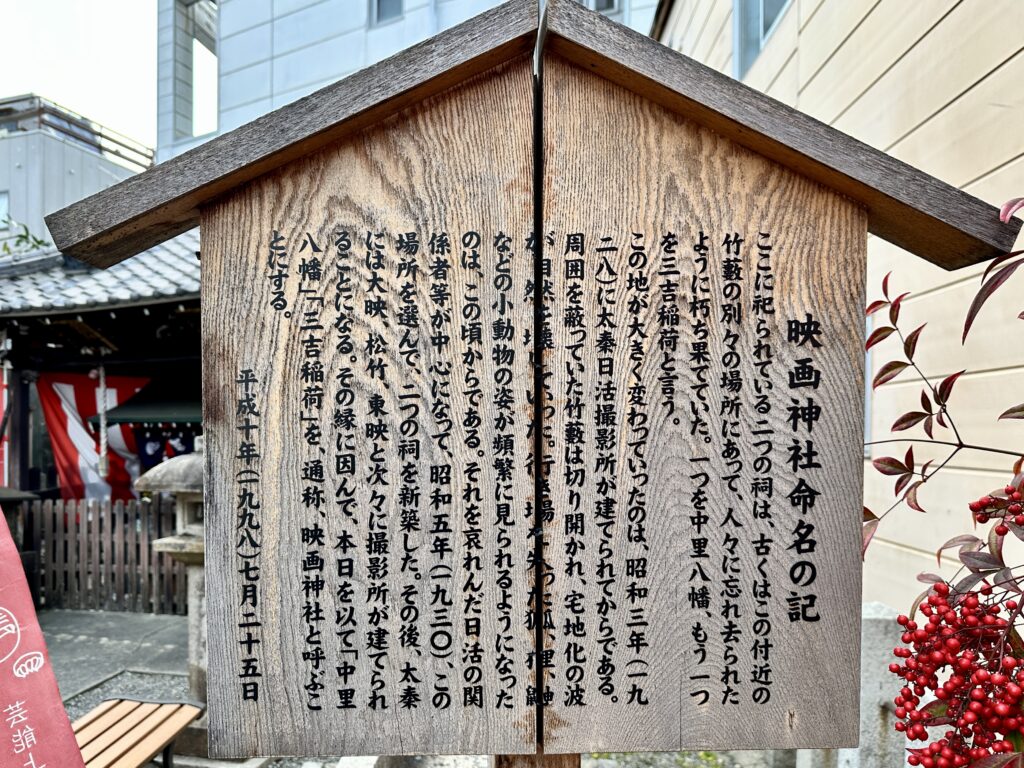 映画神社命名の記
ここに祀られている二つの祠は、古くはこの付近の
竹藪の別々の場所にあって、人々に忘れ去られた
ように朽ち果てていた。一つを中里八幡、もう一つ
を三吉稲荷と言う。
この地が大きく変わっていったのは、昭和三年(一九
二八)に太秦日活撮影所が建てられてからである。
周囲を蔽っていた竹藪は切り開かれ、宅地化の波
が自然を壊していった。行き場を失った狐、狸、
などの小動物の姿が頻繁に見られるようになった
のは、この頃からである。それを哀れんだ日活の関
係者等が中心になって、昭和五年(一九三〇)、この
場所を選んで、二つの祠を新築した。その後、太秦
には大映、松竹、東映と次々に撮影所が建てられ
ることになる。その縁に因んで、本日を以て「中里
八幡」「三吉稲荷」を、通称、映画神社と呼ぶこ
とにする。
平成十年(一九九八)七月二十五日
芸能